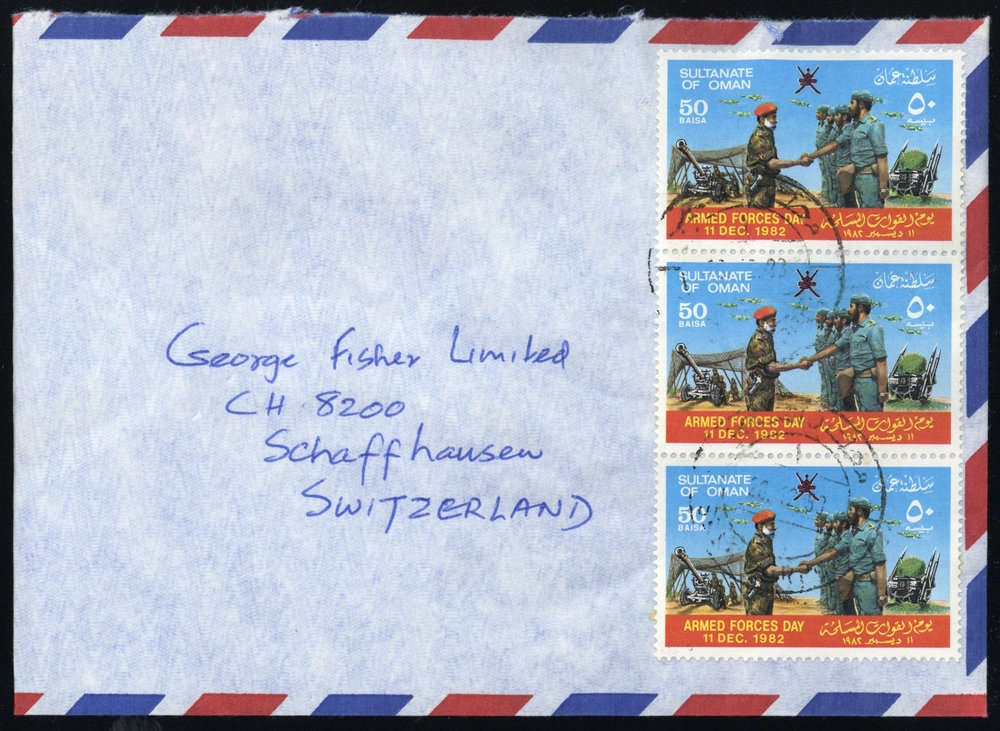 SULTANATE
OF OMAN
سلطنة عمان
50
BAISA
٥٠
بيسه
ARMED FORCES DAY
11 DEC. 1982
يوم القوات المسلحة
١١ ديسمبر ١٩٨٢
SULTANATE
OF OMAN
سلطنة عمان
50
BAISA
٥٠
بيسه
ARMED FORCES DAY
11 DEC. 1982
يوم القوات المسلحة
١١ ديسمبر ١٩٨٢
SULTANATE
OF OMAN
سلطنة عمان
50
BAISA
٥٠
بيسه
ARMED FORCES DAY
11 DEC. 1982
يوم القوات المسلحة
١١ ديسمبر ١٩٨٢
George Fisher Limited
CH 8200
Schaffhausen
SWITZERLAND